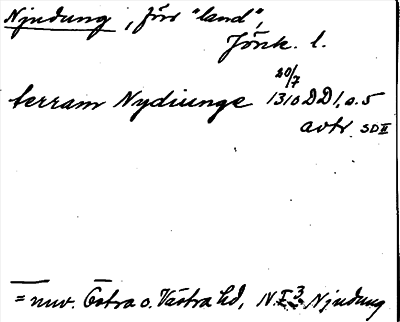 Njudung, förr "land",
Jönk. l.
20/7
terram Nydiunge 1310 DD 1, o. 5
avtr. SD II
= nuv. Östra o. Västra hd, Njudung